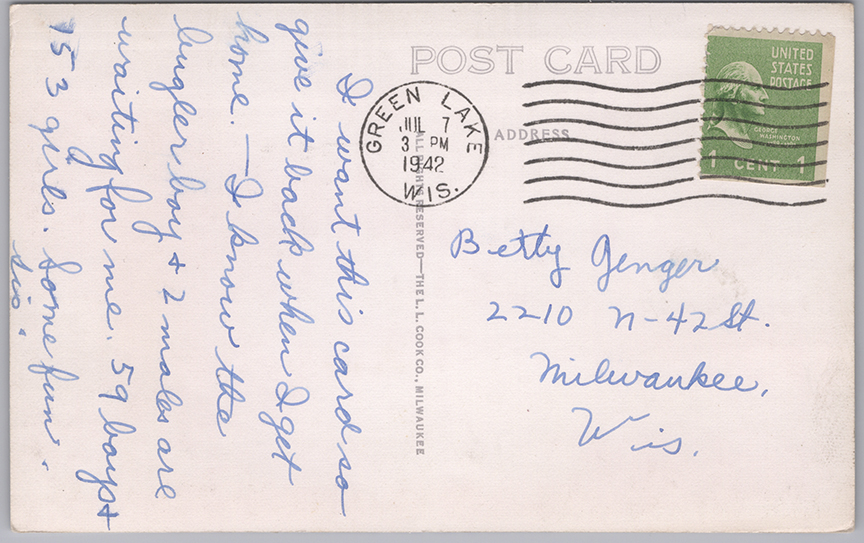 POST CARD
ADDRESS
GREEN LAKE
JUL 7
3 PM
1942
WIS.
UNITED
STATES
POSTAGE
GEORGE
WASHINGTON
1 CENT 1
ALL RIGHTS RESERVED—THE L. L. COOK CO., MILWAUKEE
I want this card so
give it back when I get
home. — I know the
bugler boy + 2 males are
waiting for me. 59 boys +
153 girls. Some fun.
Sis.
Betty Genger
2210 N-42 St.
Milwaukee,
Wis.